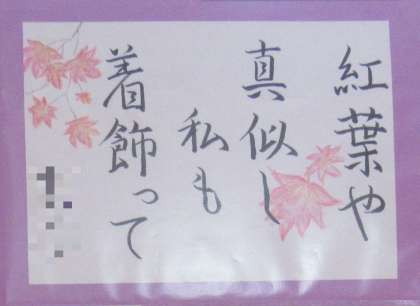 紅葉や
真似し
私も
着飾って